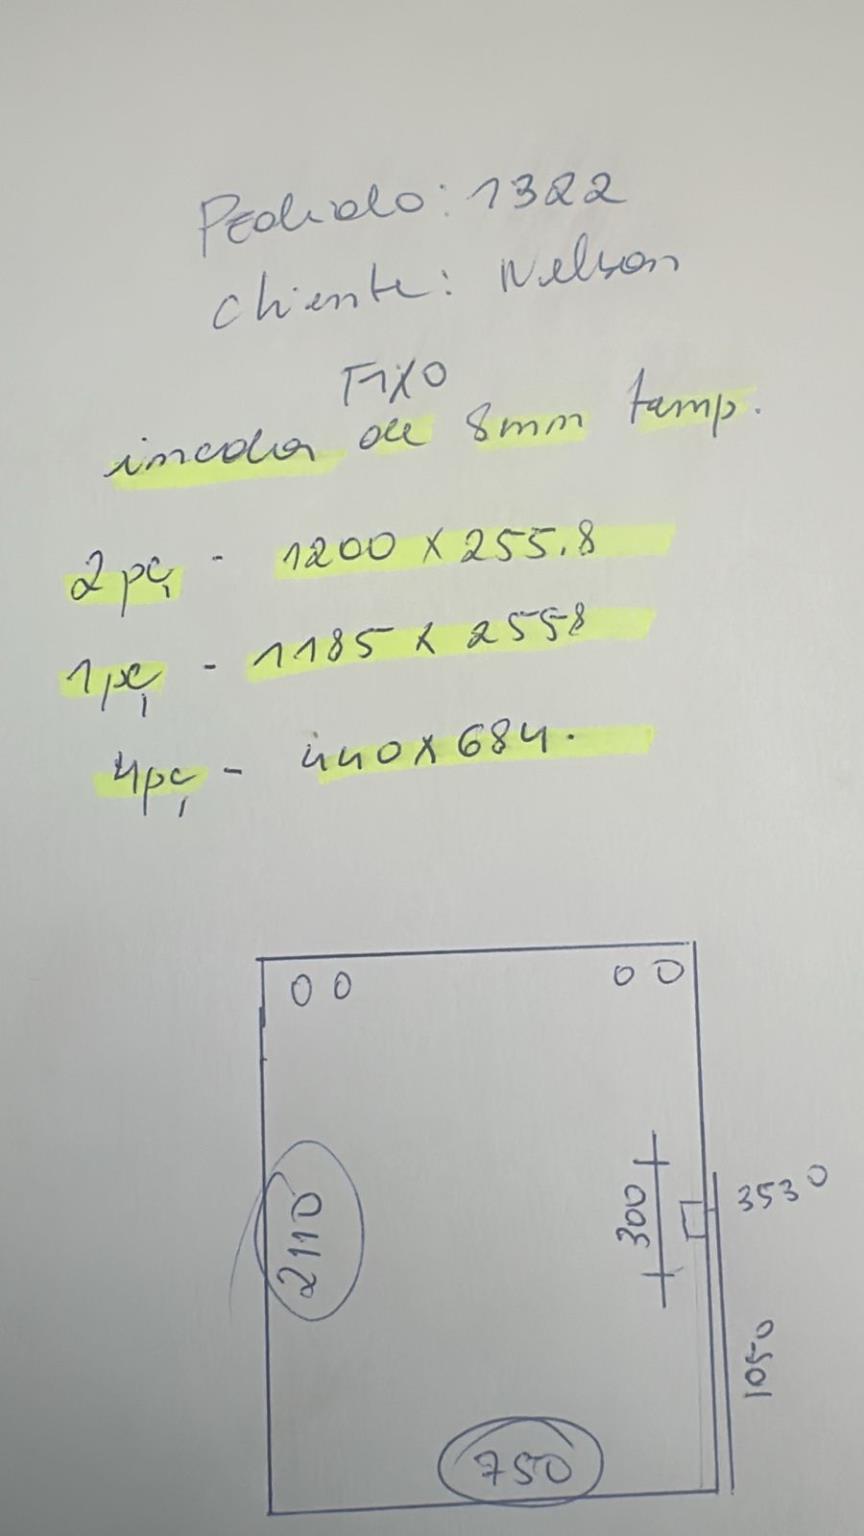 Pedido: 1322
Cliente: Nelson
FIXO
incolor de 8mm temp.
2pç - 1200 x 255.8
1pç - 1185 x 2558
4pç - 440 x 684.
2110
300
3530
1050
750